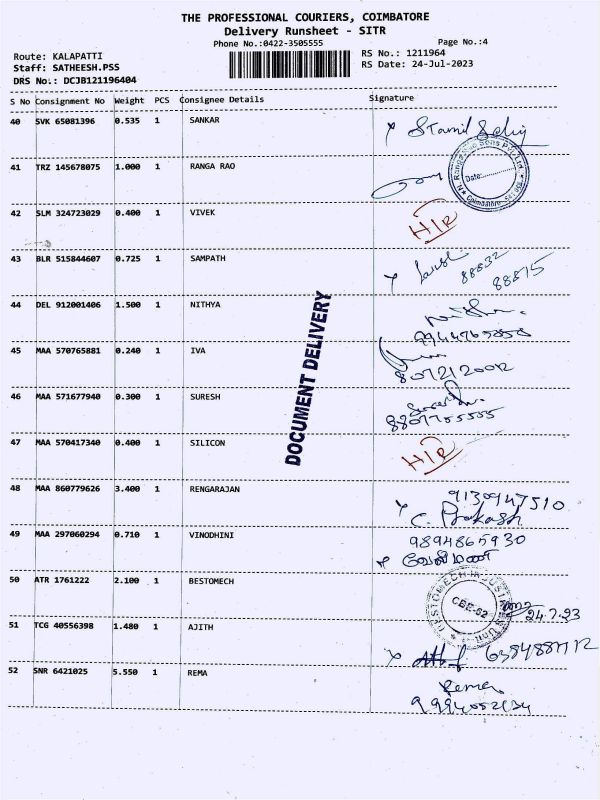 THE PROFESSIONAL COURIERS, COIMBATORE
Delivery Runsheet - SITR
Phone No.:0422-3505555 Page No.:4
Route: KALAPATTI RS No.: 1211964
Staff: SATHEESH.PSS RS Date: 24-Jul-2023
DRS No.: DCJB121196404
S No Consignment No Weight PCS Consignee Details Signature
40 SVK 65081396 0.535 1 SANKAR
41 TRZ 145678075 1.000 1 RANGA RAO
Date:
42 SLM 324723029 0.400 1 VIVEK H/R
43 BLR 515844607 0.725 1 SAMPATH 88832
88875
44 DEL 912001406 1.500 1 NITHYA
45 MAA 570765881 0.240 1 IVA
8072120012
46 MAA 571677940 0.300 1 SURESH
8807755505
47 MAA 570417340 0.400 1 SILICON H/R
DOCUMENT DELIVERY
48 MAA 860779626 3.400 1 RENGARAJAN 9130947510
C. Prakash
49 MAA 297060294 0.710 1 VINODHINI 9894865930
வேலிமணி
50 ATR 1761222 2.100 1 BESTOMECH CBE-62
24.7.23
51 TCG 40556398 1.480 1 AJITH
52 SNR 6421025 5.550 1 REMA Rema